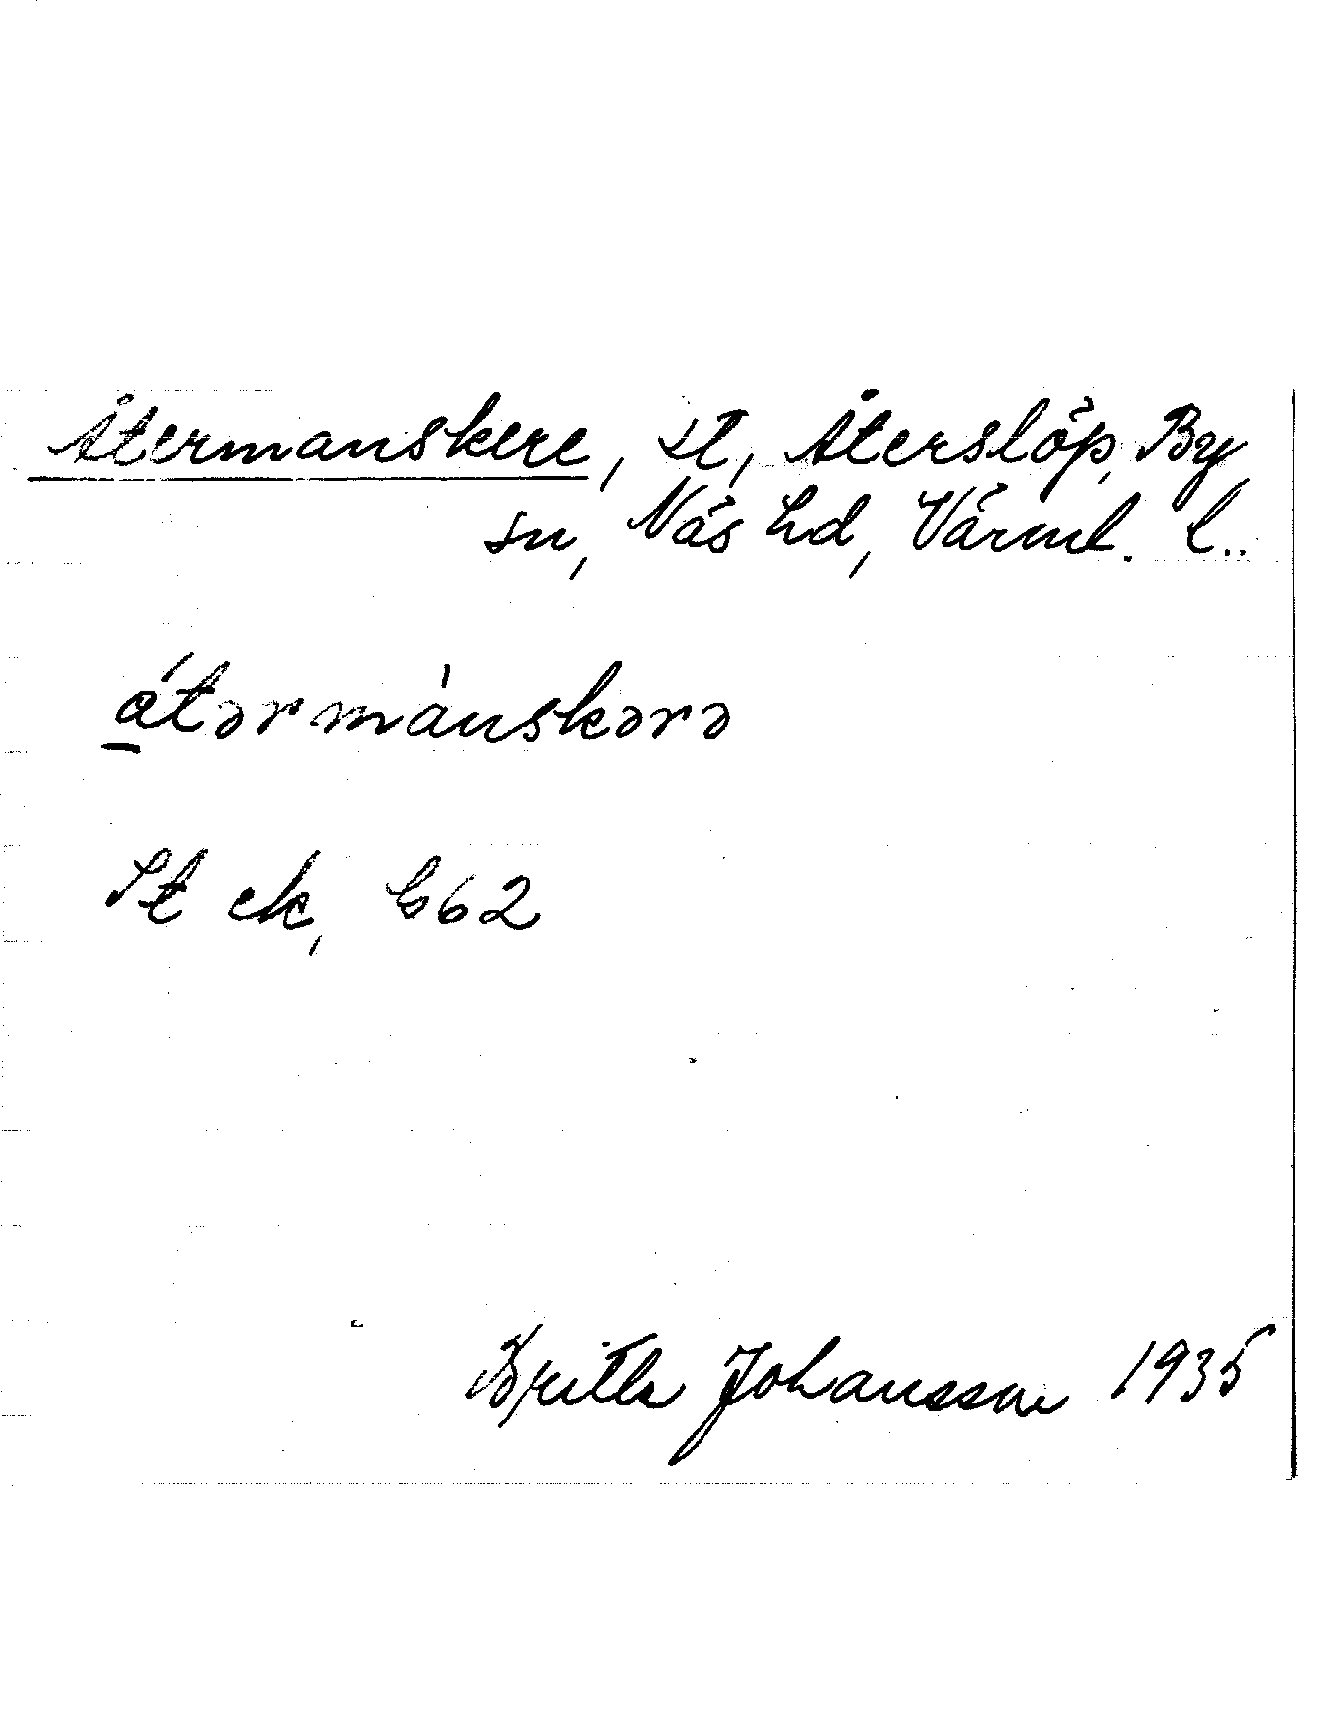 Återmanskere, st, Återslöp, By
sn, Näs hd, Värml. l..
åtərmànskərə
St ek, b62
Britta Johansson 1935